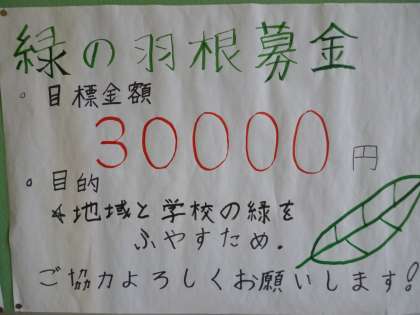 緑の羽根募金
。目標金額
30000円
。目的
☆地域と学校の緑を
ふやすため.
ご協力よろしくお願いします!